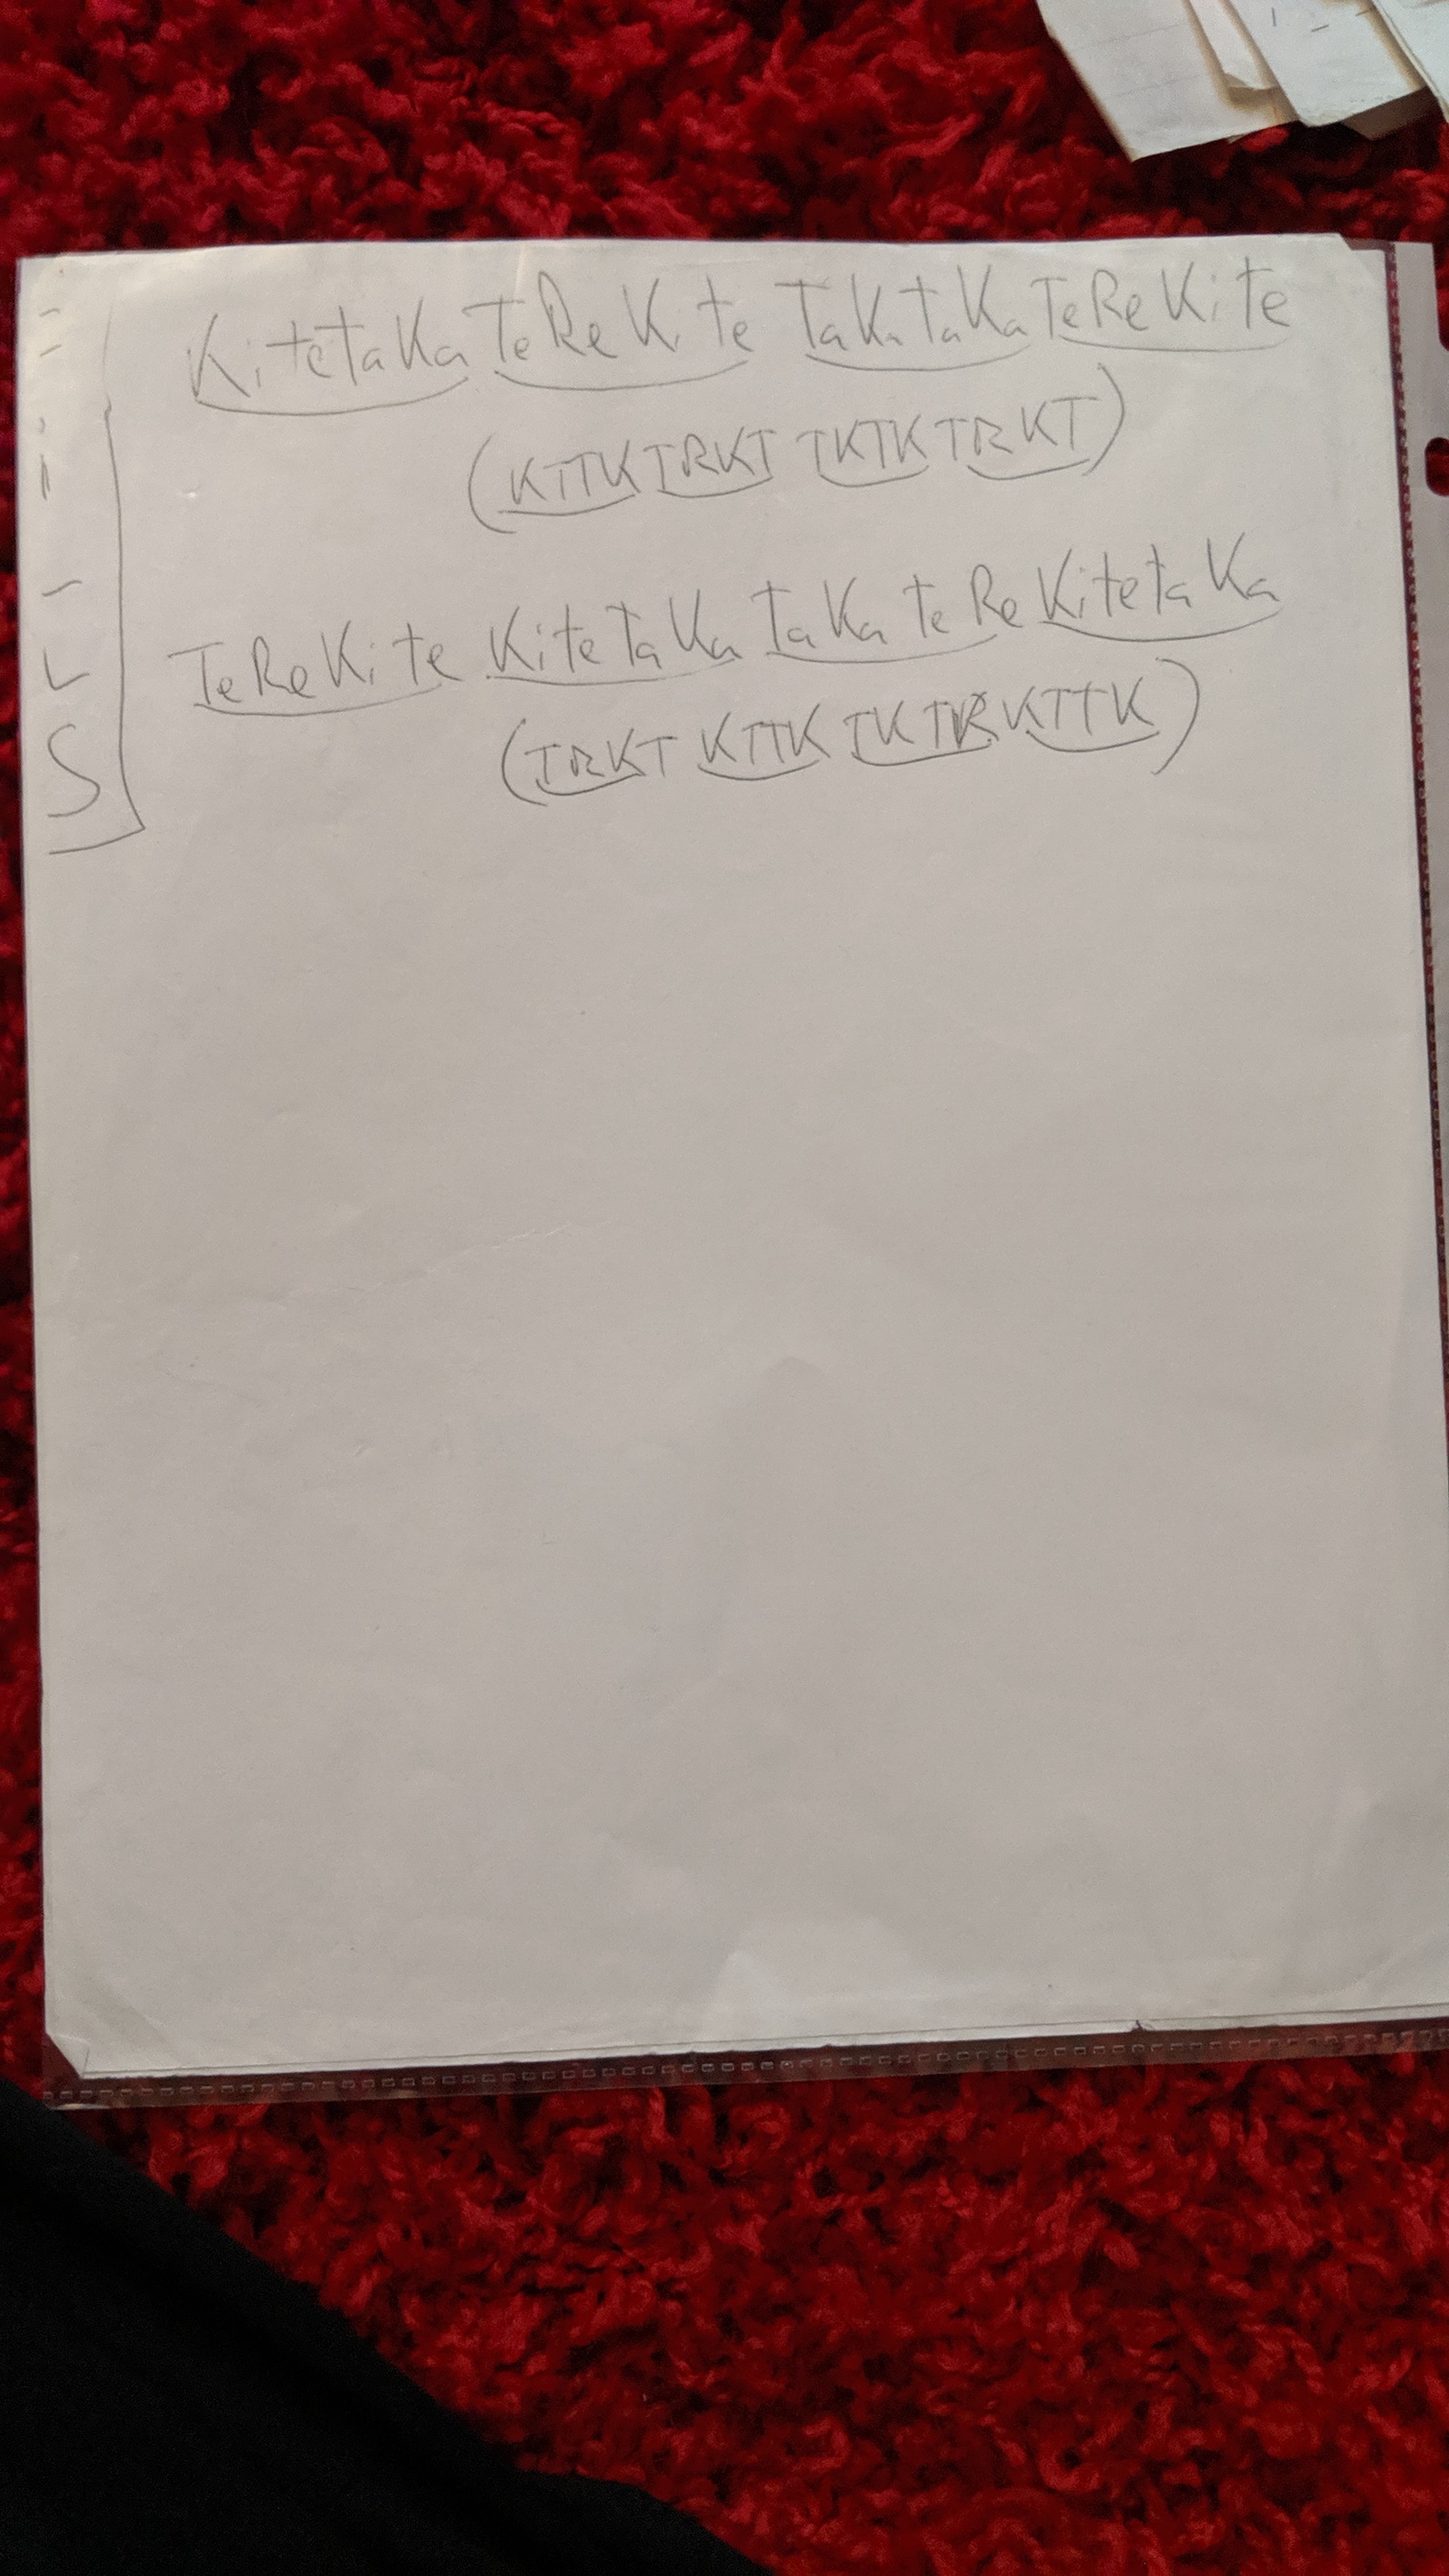 KitetaKa TeReKite TaKataKa TeReKite
(KTTK TRKT TKTK TRKT)
TeReKite KitetaKa TaKateRe KitetaKa
(TRKT KTTK TKTR KTTK)
S